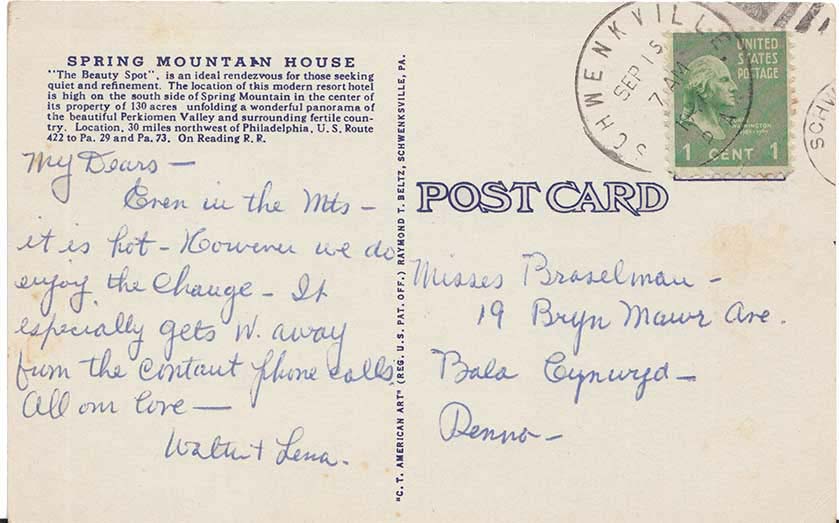 SPRING MOUNTAIN HOUSE
"The Beauty Spot", is an ideal rendezvous for those seeking
quiet and refinement. The location of this modern resort hotel
is high on the south side of Spring Mountain in the center of
its property of 130 acres unfolding a wonderful panorama of
the beautiful Perkiomen Valley and surrounding fertile coun-
try. Location, 30 miles northwest of Philadelphia, U. S. Route
422 to Pa. 29 and Pa. 73. On Reading R. R.
My Dears —
Even in the Mts —
it is hot — However we do
enjoy the change — It
especially gets W. away
from the contant phone calls.
All our love —
Walter + Lena.
"C. T. AMERICAN ART" (REG. U. S. PAT. OFF.) RAYMOND T. BELTZ, SCHWENKSVILLE, PA.
POST CARD
SCHWENKVILLE,
SEP 15
7 AM
PA
UNITED
STATES
POSTAGE
WASHINGTON
1 CENT 1
SCHW
Misses Braselman —
19 Bryn Mawr Ave.
Bala Cynwyd —
Penna —